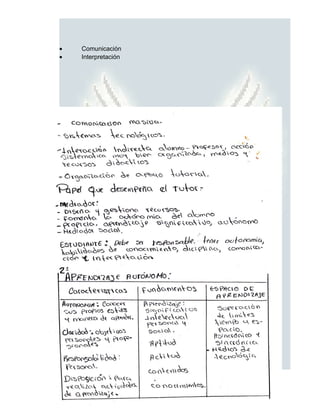 • Comunicación
• Interpretación
- Comunicación masiva.
- Sistemas tecnológicos.
- Interacción Indirecta alumno - Profesor, acción
sistematica muy bien organizada, medios y
recursos didacticos
- Organización de apoyo tutorial.
Papel que desempeña el Tutor:
- Mediador:
- Diseña y gestiona recursos.
- Fomenta la autónomia del alumno
- propicia, aprendizaje significativo, autónomo
- Mediada social,
ESTUDIANTE: Debe ser responsable, tener autonomia,
habilidades de conocimiento, diciplina, comunica-
ción e interpretación
2:
APRENDIZAJE AUTÓNOMO:
Caracteristicas
Fundamentos
ESPACIO DE
APRENDIZAJE
Autonomia: Conocer
sus propios estilos
y manera de aprender.
Claridad: objetivos
personales y profe-
sionales
Responsabilidad:
Personal.
Disposición: Para
realizar actividades
de aprendizaje.
Aprendizaje:
Significativos
Intelectual
personal y
social.
Aptitud
Actitud
contenidos
conocimientos.
Superación
de limites
tiempo y es-
pacio.
Asincrónico e
sincrónica
- Medios de
tecnología